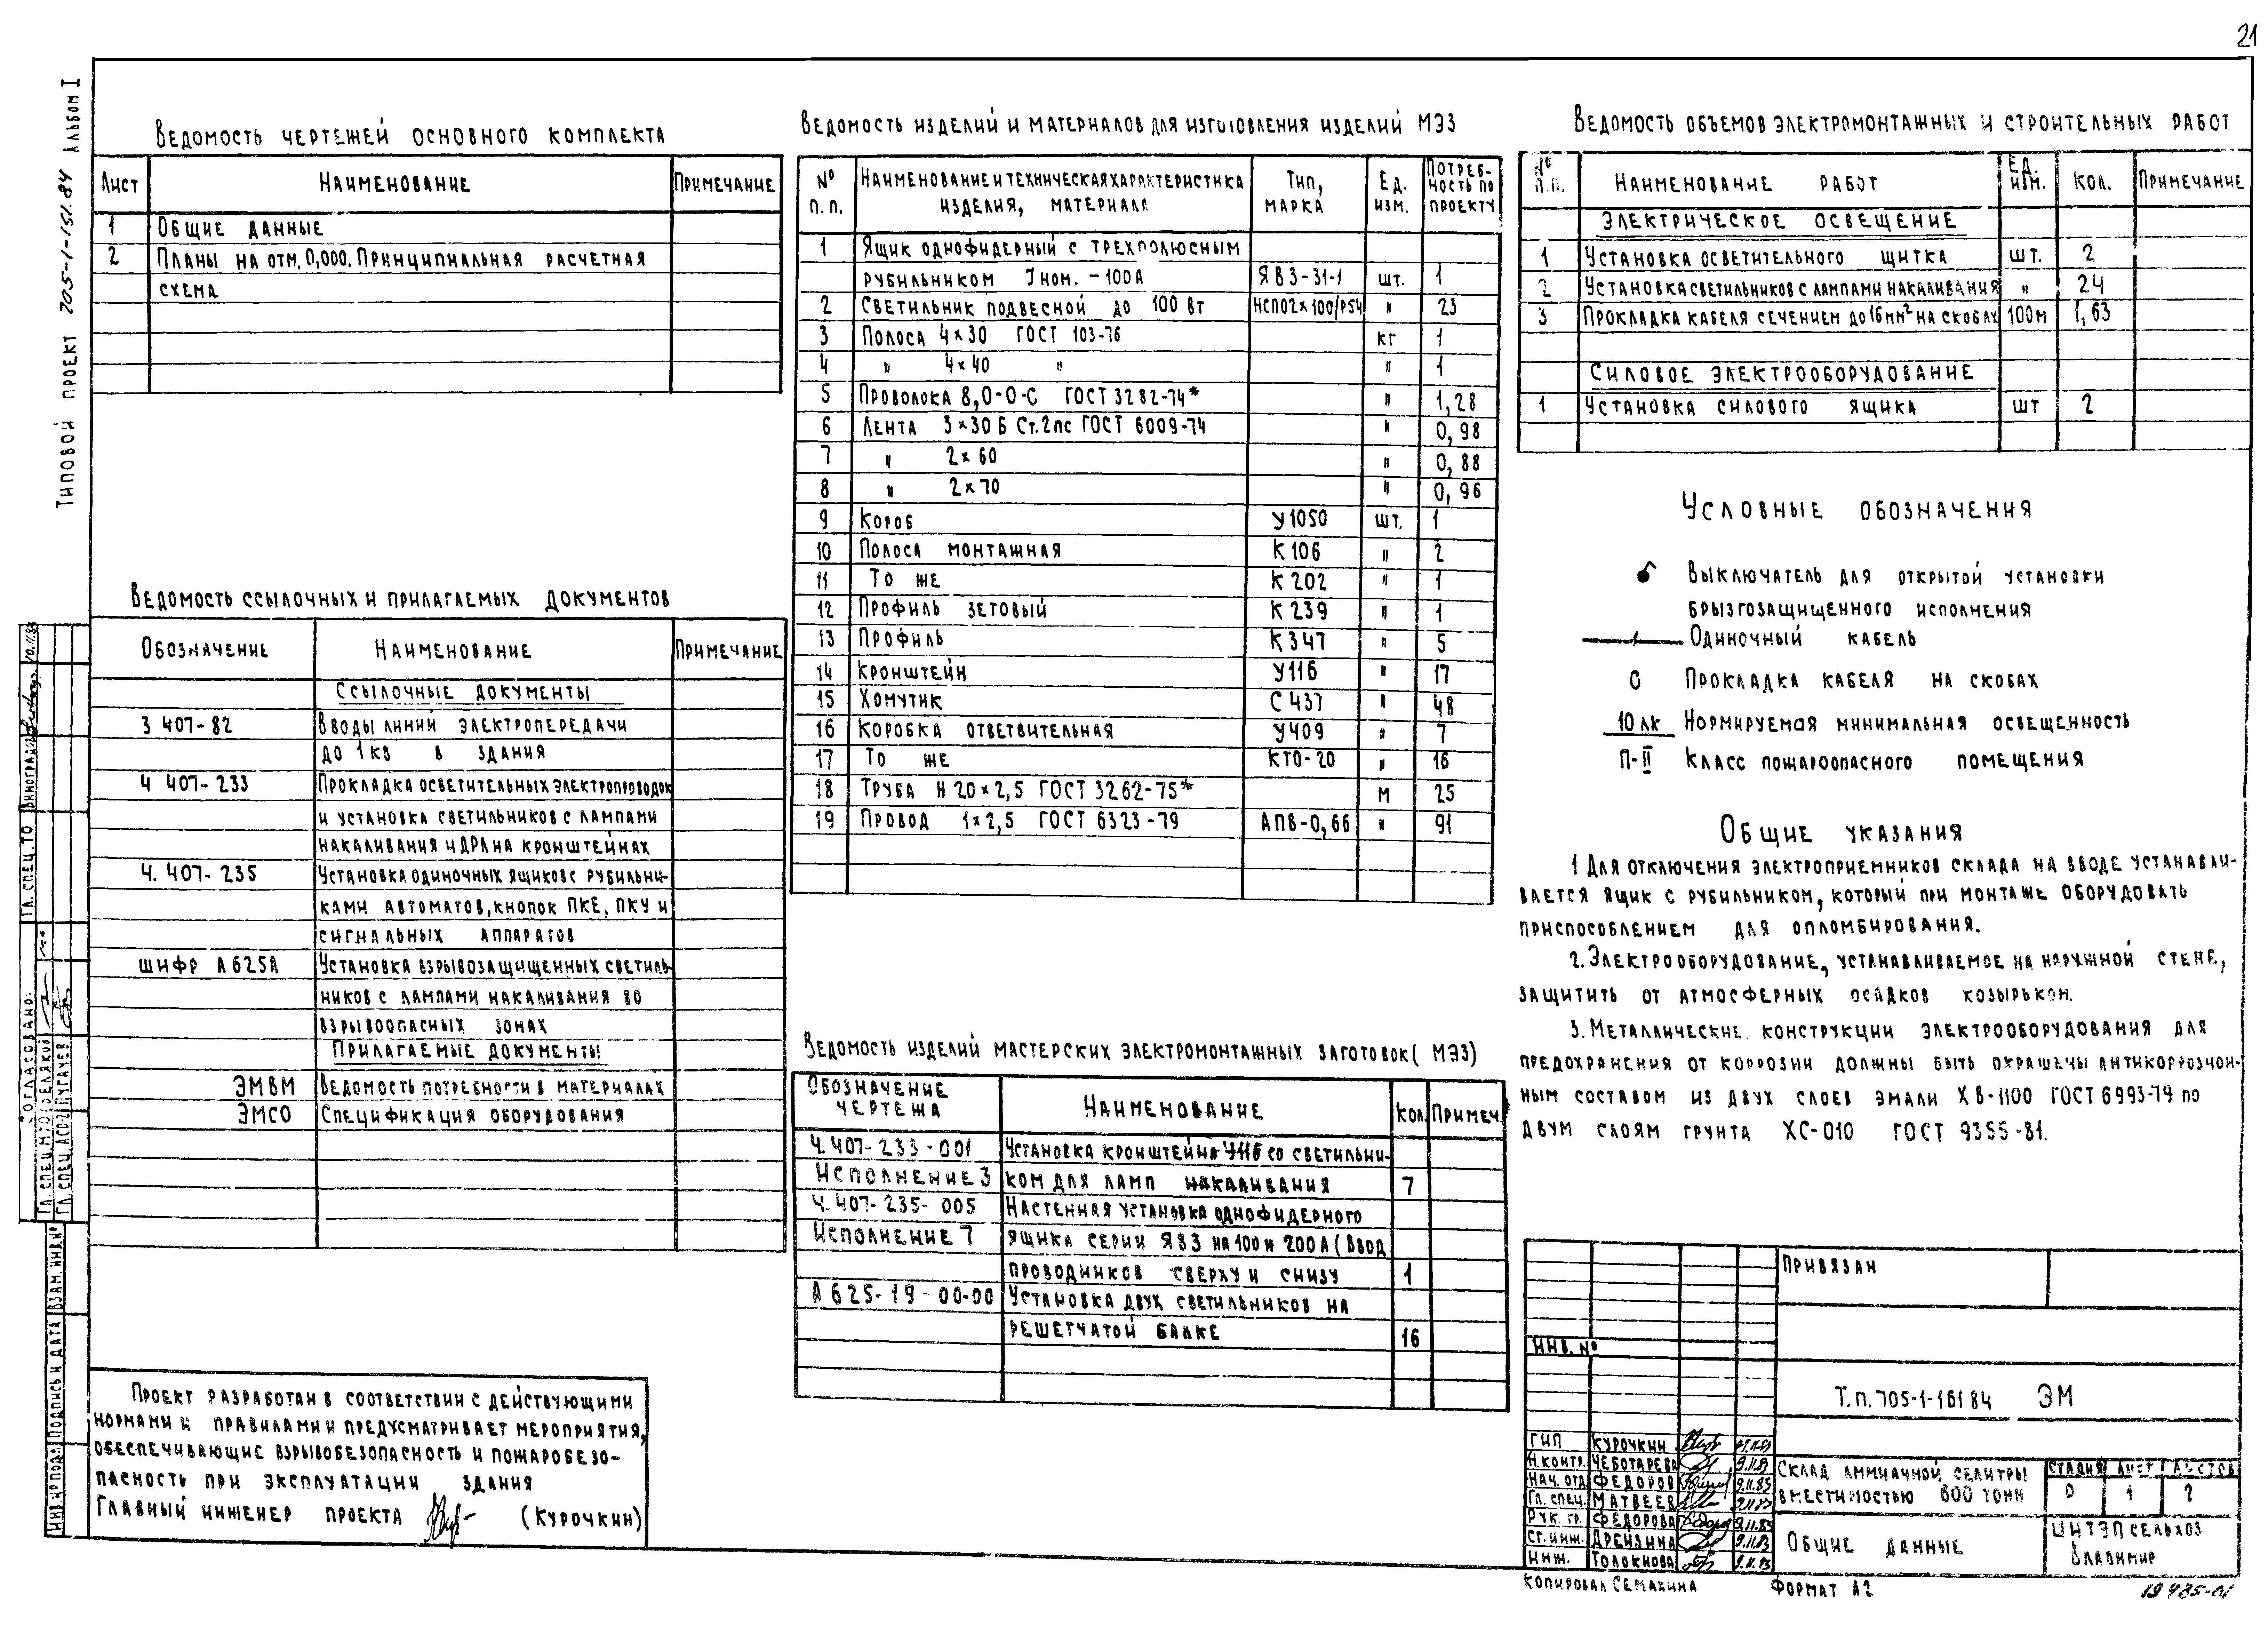 21
Типовой проект 705-1-151.84 Альбом I
Ведомость чертежей основного комплекта
Лист Наименование Примечание
1 Общие данные
2 Планы на отм. 0,000. Принципиальная расчетная
схема
Ведомость ссылочных и прилагаемых документов
Обозначение Наименование Примечание
Ссылочные документы
3 407-82 Вводы линий электропередачи
до 1кв в здания
4 407-233 Прокладка осветительных электропроводок
и установка светильников с лампами
накаливания и ДРЛ на кронштейнах
4.407-235 Установка одиночных ящиков с рубильни-
ками автоматов, кнопок ПКЕ, ПКУ и
сигнальных аппаратов
шифр А625А Установка взрывозащищенных светиль-
ников с лампами накаливания во
взрывоопасных зонах
Прилагаемые документы
ЭМВМ Ведомость потребности в материалах
ЭМСО Спецификация оборудования
Проект разработан в соответствии с действующими
нормами и правилами и предусматривает мероприятия,
обеспечивающие взрывобезопасность и пожаробезо-
пасность при эксплуатации здания
Главный инженер проекта (Курочкин)
Ведомость изделий и материалов для изготовления изделий МЭЗ
№ п.п. Наименование и техническая характеристика изделия, материала Тип, марка Ед. изм. Потреб-ность по проекту
1 Ящик однофидерный с трехполюсным
рубильником Jном. -100А ЯВ3-31-1 шт. 1
2 Светильник подвесной до 100 Вт НСП02×100/Р54 " 23
3 Полоса 4×30 ГОСТ 103-76 кг 1
4 " 4×40 " " 1
5 Проволока 8,0-О-С ГОСТ 3282-74* " 1,28
6 Лента 3×30 Б Ст.2пс ГОСТ 6009-74 " 0,98
7 " 2×60 " 0,88
8 " 2×70 " 0,96
9 Короб У1050 шт. 1
10 Полоса монтажная К106 " 2
11 То же К202 " 1
12 Профиль зетовый К239 " 1
13 Профиль К347 " 5
14 Кронштейн У116 " 17
15 Хомутик С437 " 48
16 Коробка ответвительная У409 " 7
17 То же КТО-20 " 16
18 Труба Н 20×2,5 ГОСТ 3262-75* м 25
19 Провод 1×2,5 ГОСТ 6323-79 АПВ-0,66 " 91
Ведомость изделий мастерских электромонтажных заготовок (МЭЗ)
Обозначение чертежа Наименование Кол. Примеч.
4.407-233-001 Установка кронштейна У116 со светильни-
Исполнение 3 ком для ламп накаливания 7
4.407-235-005 Настенная установка однофидерного
Исполнение 7 ящика серии ЯВ3 на 100 и 200А (ввод
проводников сверху и снизу 1
А625-19-00-00 Установка двух светильников на
решетчатой балке 16
Ведомость объемов электромонтажных и строительных работ
№ п.п. Наименование работ Ед. изм. Кол. Примечание
Электрическое освещение
1 Установка осветительного щитка шт. 2
2 Установка светильников с лампами накаливания " 24
3 Прокладка кабеля сечением до 16мм² на скобах 100м 1,63
Силовое электрооборудование
1 Установка силового ящика шт 2
Условные обозначения
Выключатель для открытой установки
брызгозащищенного исполнения
Одиночный кабель
С Прокладка кабеля на скобах
10 лк Нормируемая минимальная освещенность
П-II Класс пожароопасного помещения
Общие указания
1 Для отключения электроприемников склада на вводе устанавли-
вается ящик с рубильником, который при монтаже оборудовать
приспособлением для опломбирования.
2. Электрооборудование, устанавливаемое на наружной стене,
защитить от атмосферных осадков козырьком.
3. Металлические конструкции электрооборудования для
предохранения от коррозии должны быть окрашены антикоррозион-
ным составом из двух слоев эмали ХВ-1100 ГОСТ 6993-79 по
двум слоям грунта ХС-010 ГОСТ 9355-81.
Привязан
Инв. №
Т.п. 705-1-161 84 ЭМ
ГИП Курочкин
Н.контр. Чеботарева 9.11.83
Нач. отд Федоров 9.11.83
Гл. спец. Матвеев 9.11.83
Рук. гр. Федорова 9.11.83
Ст. инж. Дрензина 9.11.83
Инж. Толокнова 9.11.83
Склад аммиачной селитры
вместимостью 600 тонн
Стадия Лист Листов
Р 1 2
Общие данные
ЦНТЭПсельхоз
Владимир
Копировал Семахина Формат А2
19435-01
Согласовано:
Гл. спец. МТО Беляков
Гл. спец. АСО Пугачев
Гл. спец. ТО Виноградов 10.11.83
Инв.№ подл Подпись и дата Взам. инв.№